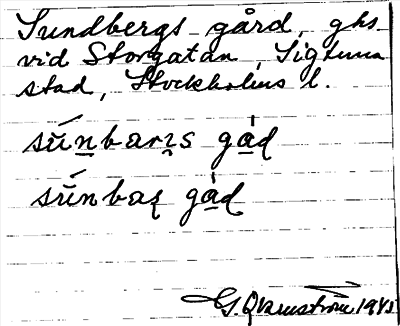 Sundbergs gård, ghs
vid Storgatan, Sigtuna
stad, Stockholms l.
sŭ́n̲barı̲s gå̲d
sŭ́nbaʂ gå̲d
G. Qvarnström 1943